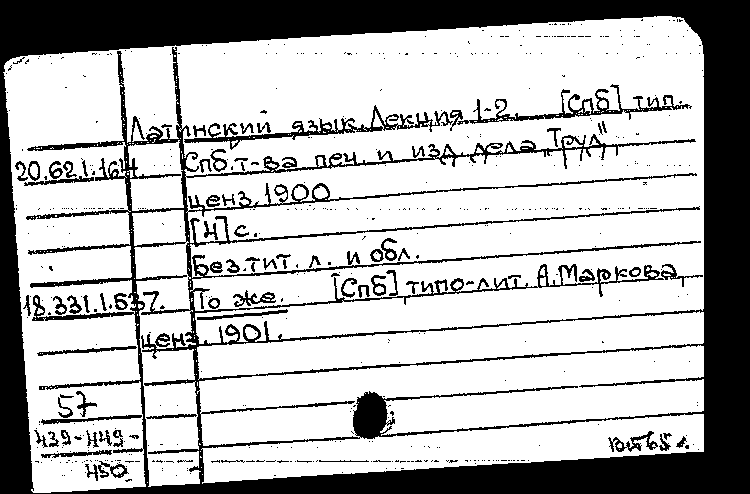 Латинский язык. Лекция 1-2. [Спб], тип.
20.62.1.164. Спб. т-ва печ. и изд. дела „Труд",
ценз. 1900
[4] с.
Без тит. л. и обл.
18.331.1.537. То же. [Спб], типо-лит. А. Маркова,
ценз. 1901.
57
439-449-
450